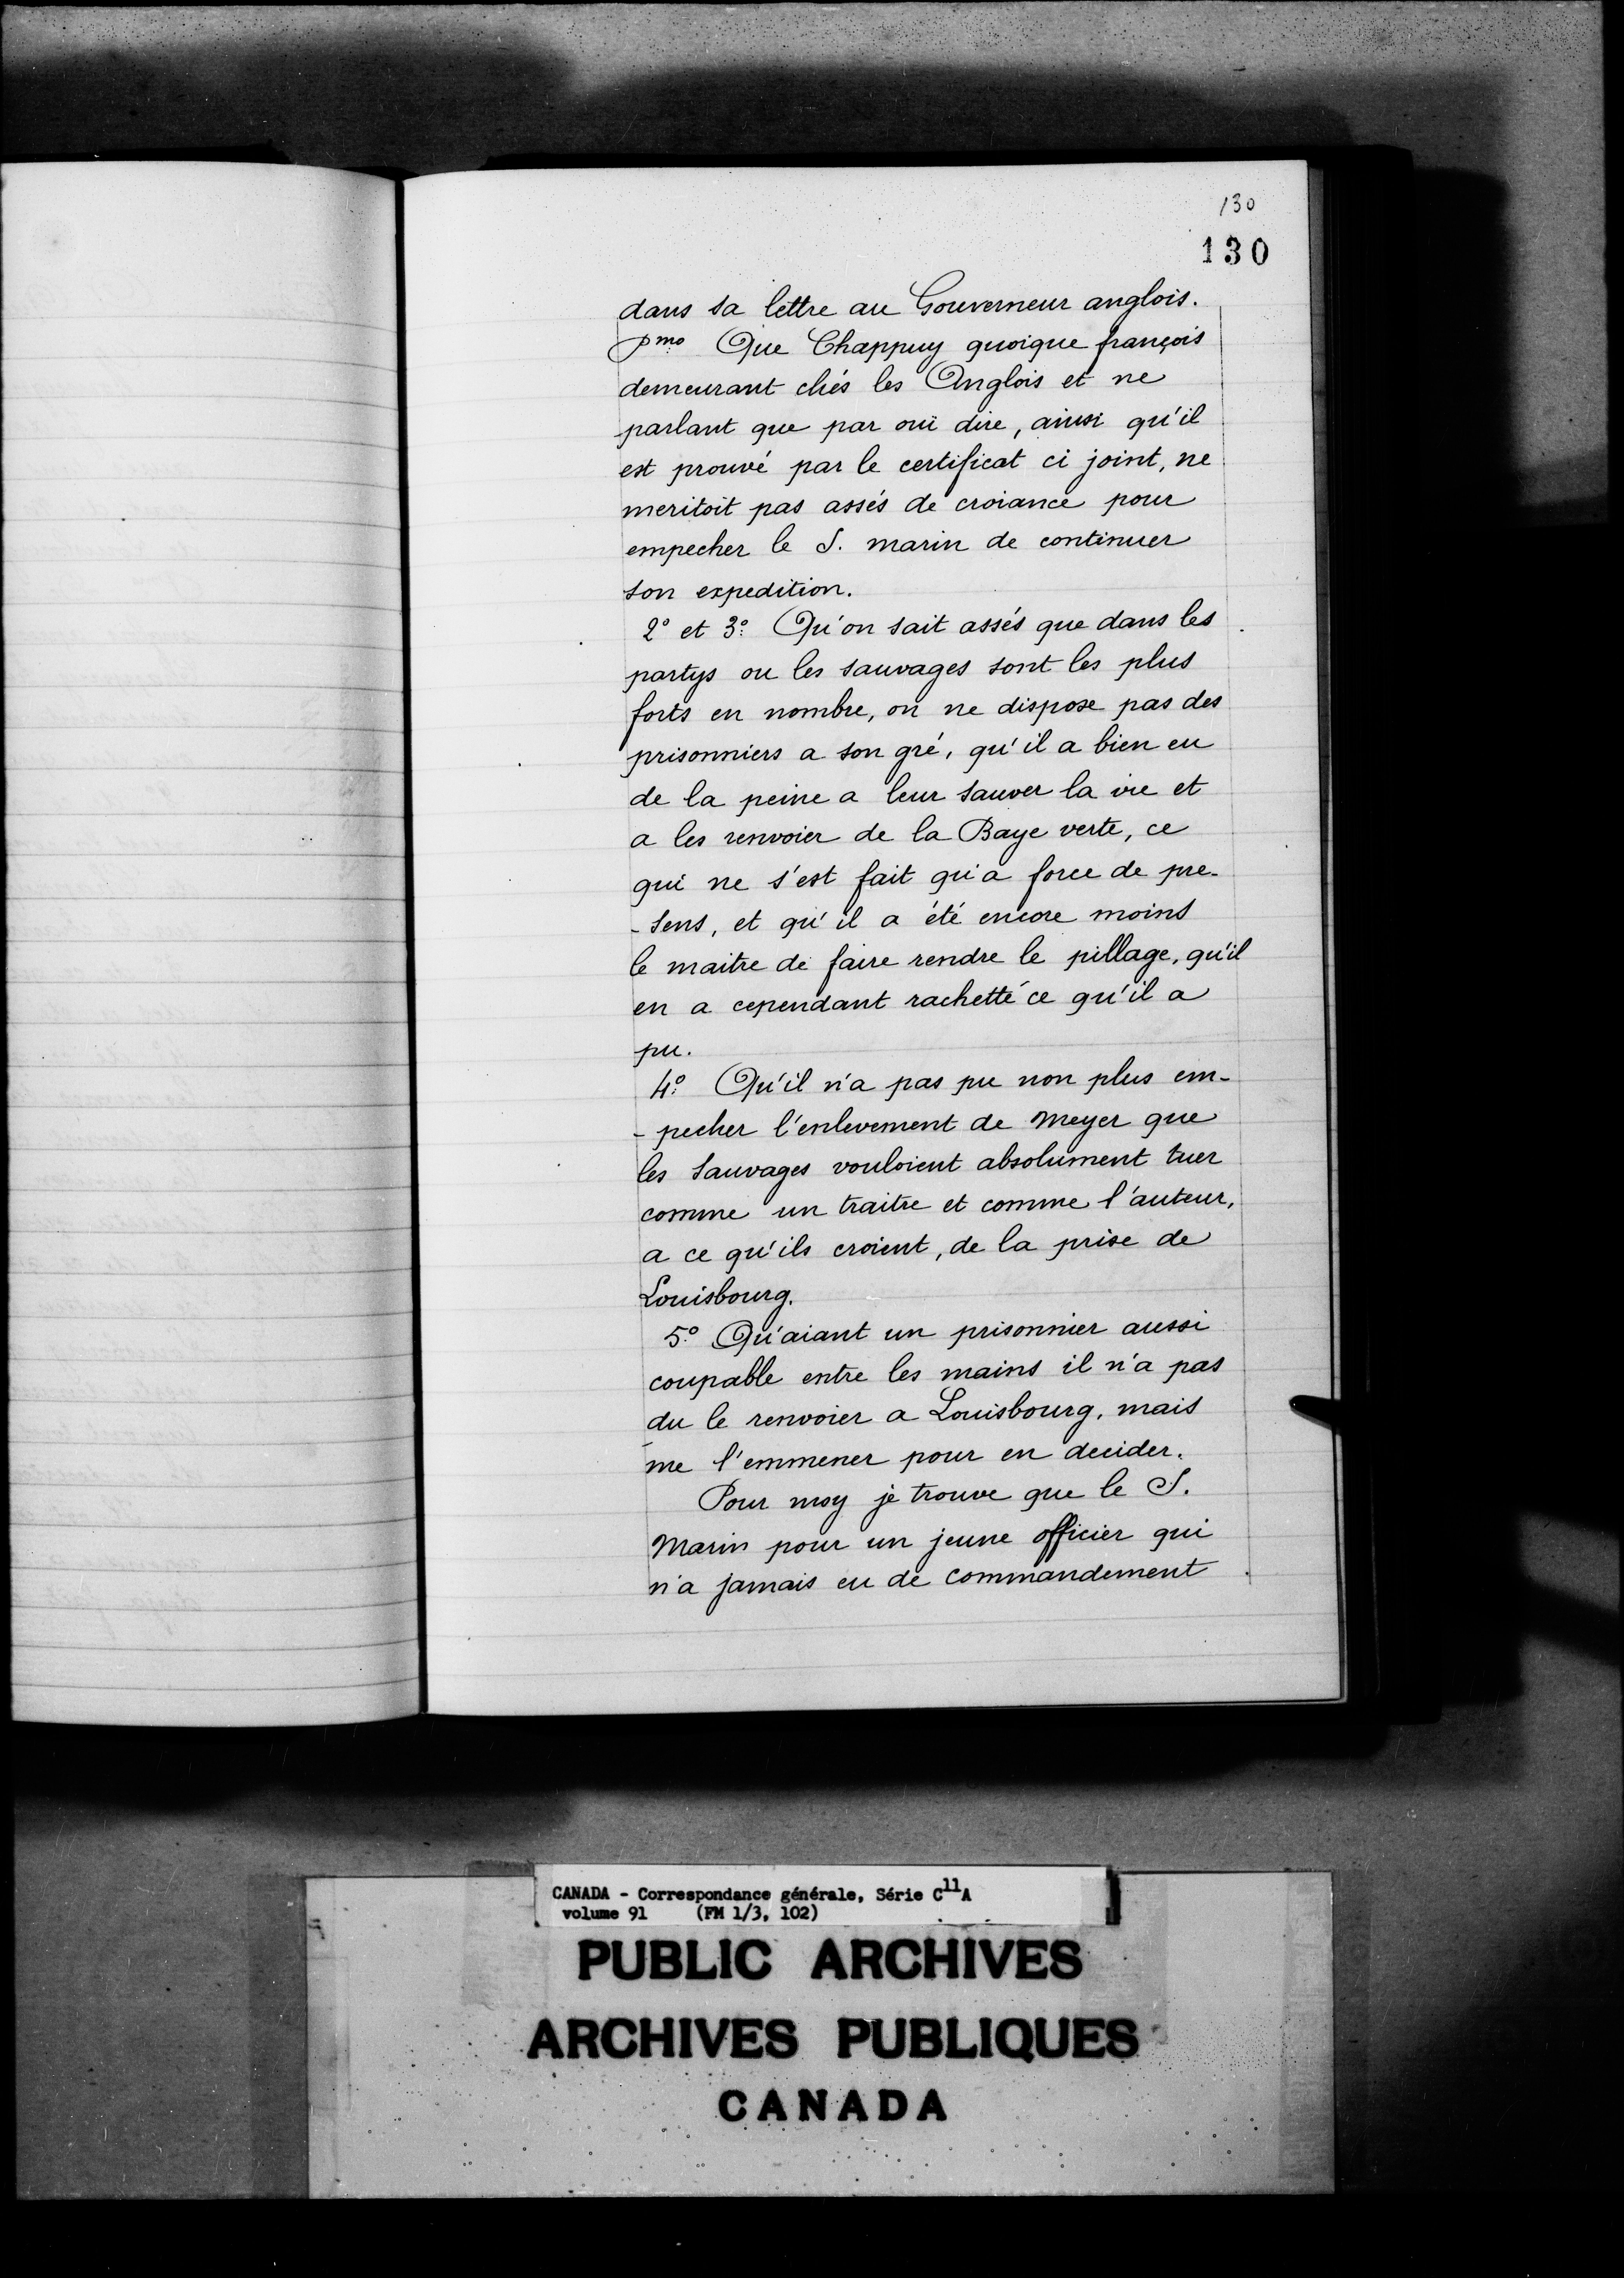 130
130
dans sa lettre au Gouverneur anglois.
Pmo Que Chappuy quoique françois
demeurant chés les Anglois et ne
parlant que par oui dire, ainsi qu'il
est prouvé par le certificat ci joint, ne
meritoit pas assés de croiance pour
empecher le S. marin de continuer
son expedition.
2º et 3º Qu'on sait assés que dans les
partys ou les sauvages sont les plus
forts en nombre, on ne dispose pas des
prisonniers a son gré, qu'il a bien eu
de la peine a leur sauver la vie et
a les renvoier de la Baye verte, ce
qui ne s'est fait qu'a force de pre-
-sens, et qu'il a été encore moins
le maitre de faire rendre le pillage, qu'il
en a cependant rachetté ce qu'il a
pu.
4º Qu'il n'a pas pu non plus em-
-pecher l'enlevement de Meyer que
les Sauvages vouloient absolument tuer
comme un traitre et comme l'auteur,
a ce qu'ils croient, de la prise de
Louisbourg.
5º Qu'aiant un prisonnier aussi
coupable entre les mains il n'a pas
du le renvoier a Louisbourg, mais
me l'emmener pour en decider.
Pour moy je trouve que le S.
Marin pour un jeune officier qui
n'a jamais eu de commandement
CANADA - Correspondance générale, Série C11A
volume 91 (FM 1/3, 102)
PUBLIC ARCHIVES
ARCHIVES PUBLIQUES
CANADA